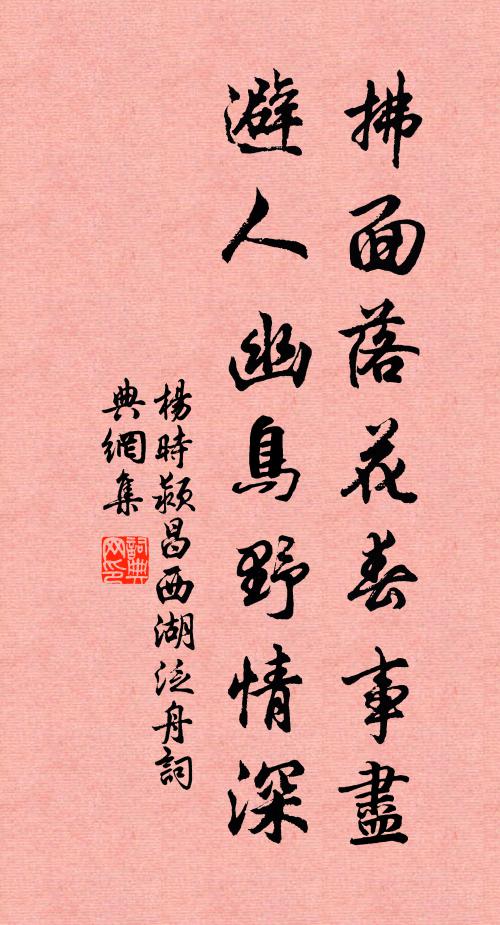 拂面落花春事盡
避人幽鳥野情深
楊時潁昌西湖泛舟詞
典網集
詞典
网印